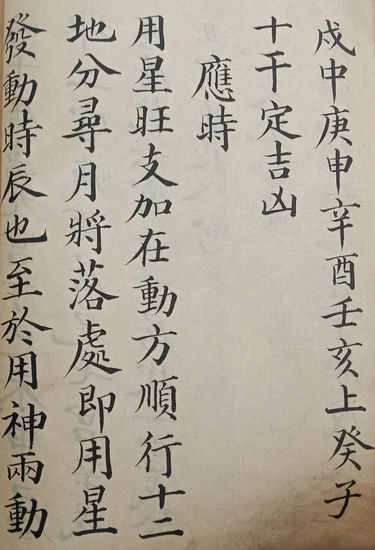 戍中庚申辛酉壬亥上癸子
十干定吉凶
應時
用星旺支加在動方順行十二
地分尋月將落處即用星
發動時辰也至於用神兩動